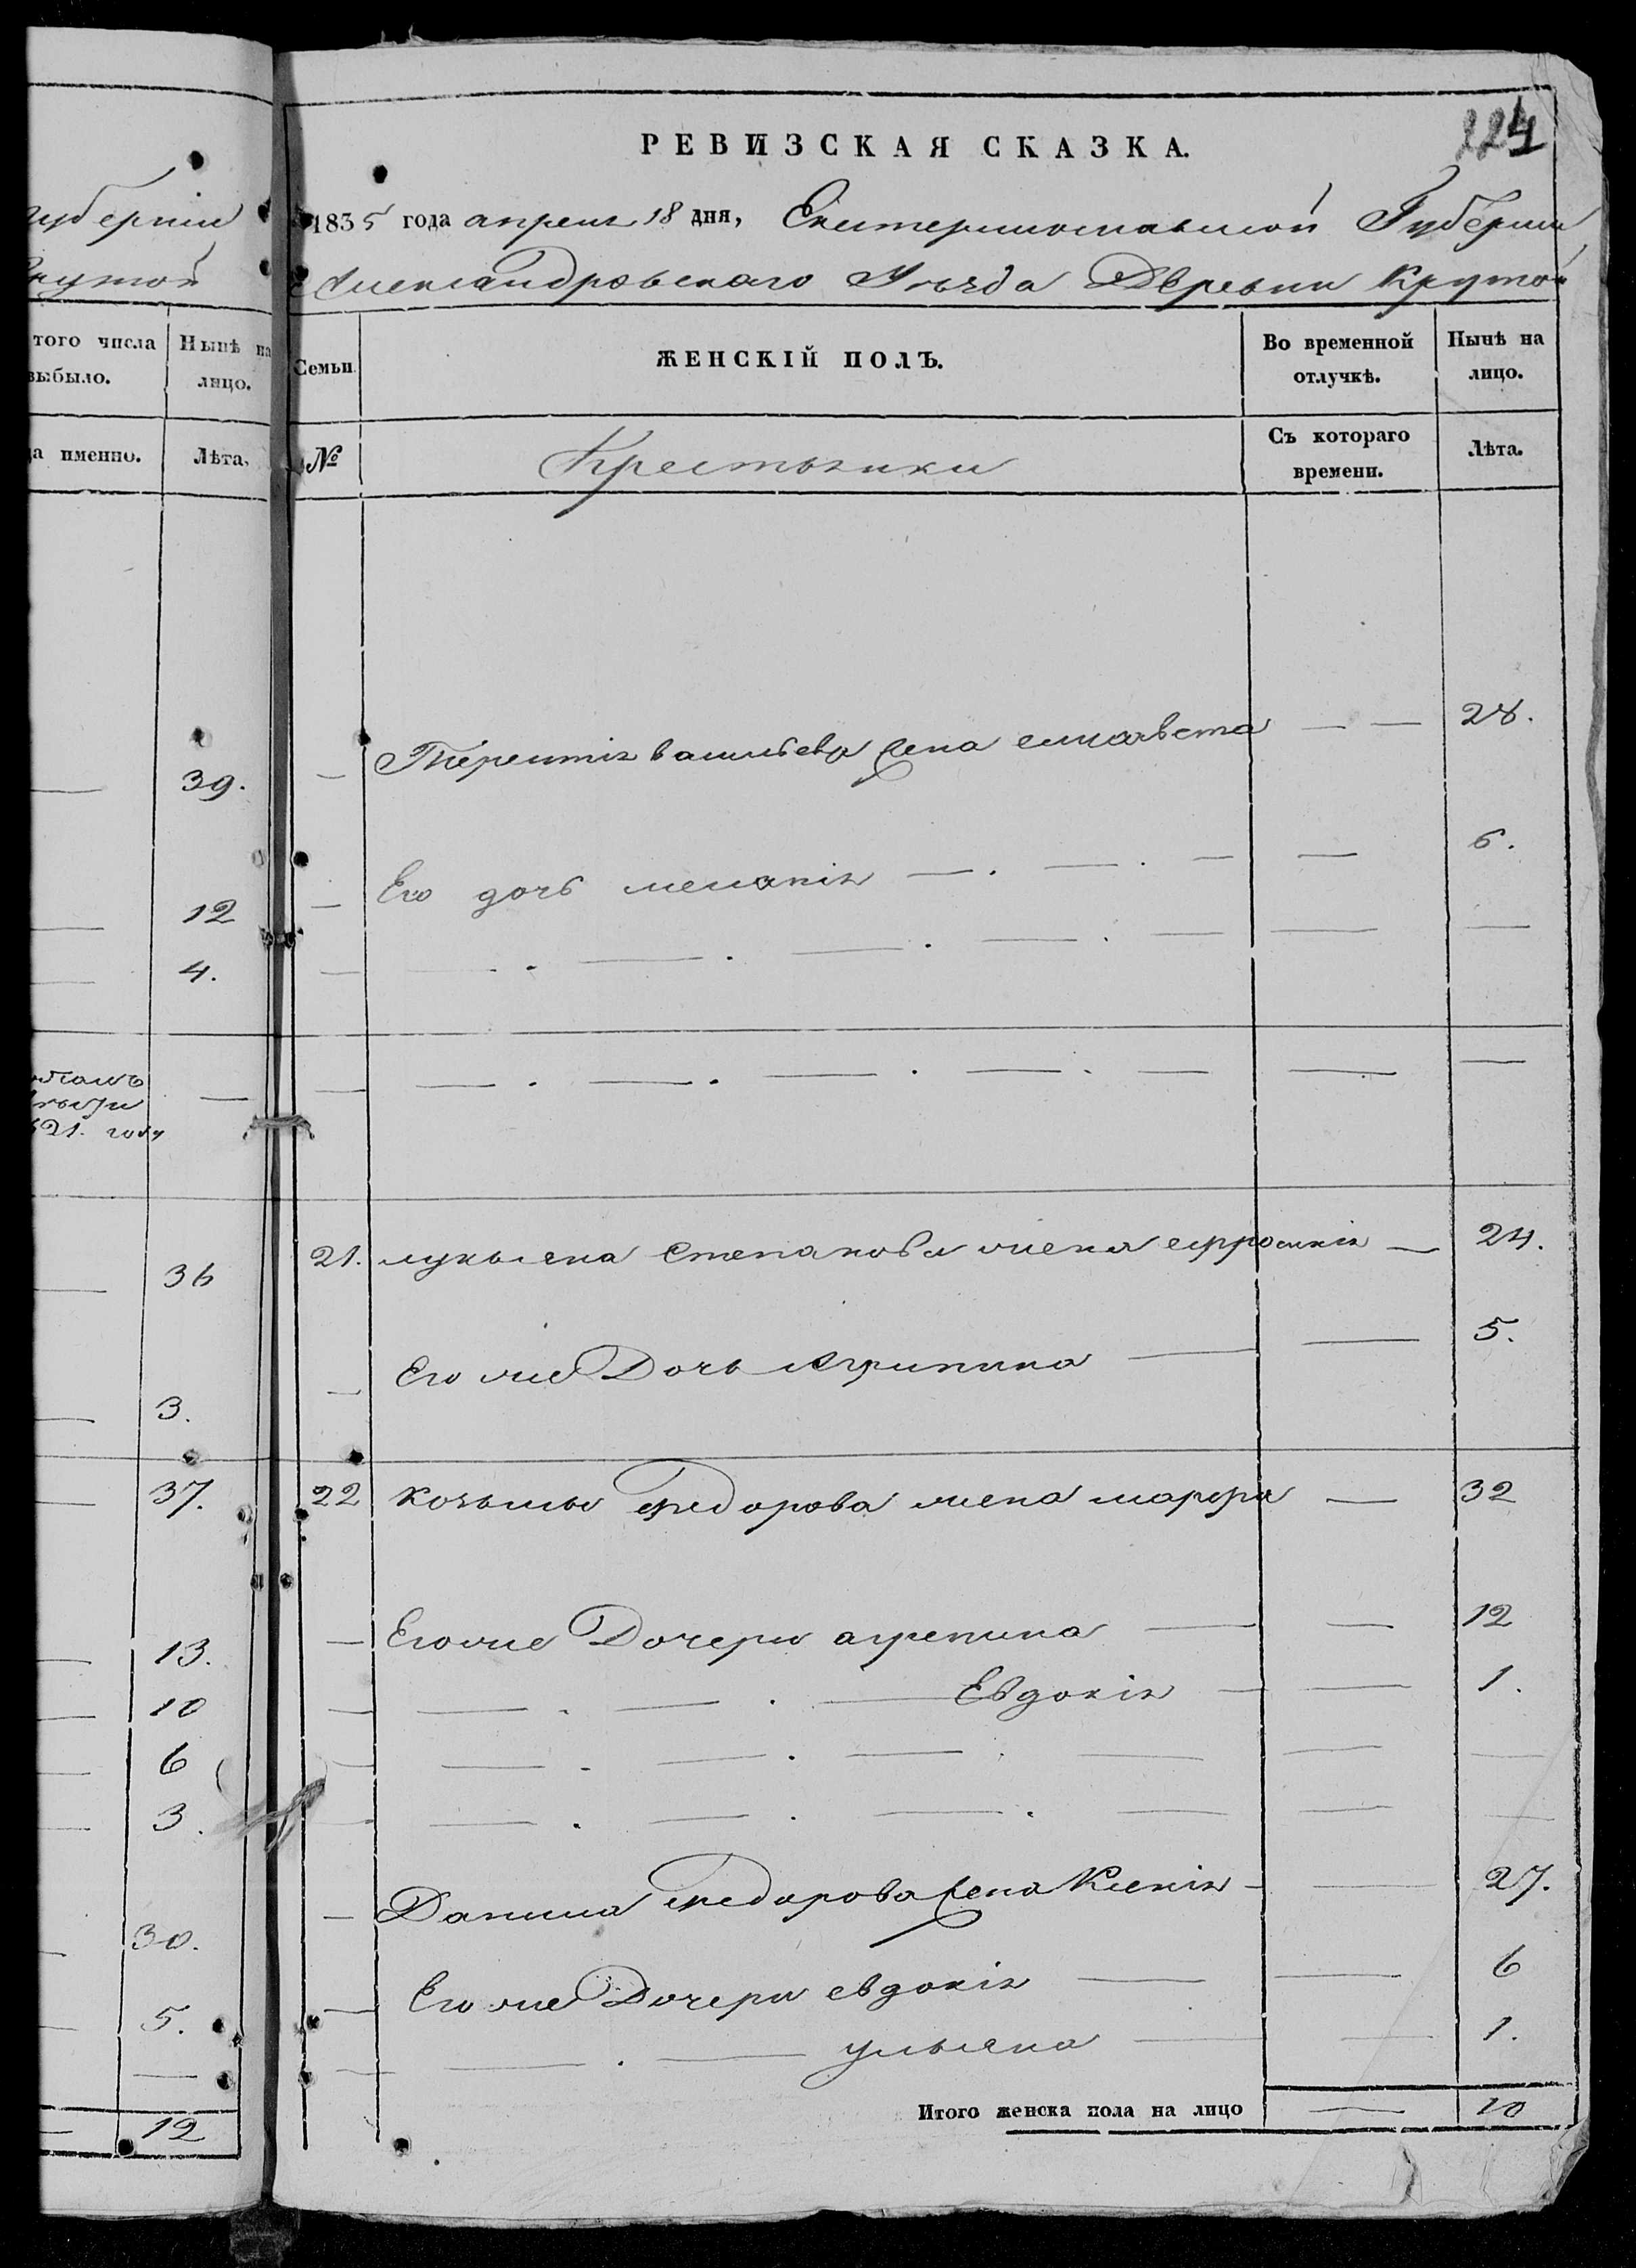 губерніи
Крутой
того числа
выбыло.
Нынѣ на
лицо.
да именно.
Лѣта.
39.
12
4.
821. году
36
3.
37.
13.
10
6
3.
30.
5.
12
224
РЕВИЗСКАЯ СКАЗКА.
1835 года апреля 18 дня, Екатеринославской Губерніи
Александровскаго Уезда Деревни Крутой
Семьи
ЖЕНСКІЙ ПОЛЪ.
Во временной
отлучкѣ.
Нынѣ на
лицо.
№
Крестьянки
Съ котораго
времени.
Лѣта.
— Терентія васильева жена елисавета — — 28.
— Его дочь меланія — . — . — — 6.
— — . — . — . — . — — —
— — . — . — . — . — — —
21. лукьяна Степанова жена ефросинія — 24.
— Его же Дочь агрипина — — 5.
22 козьмы федорова жена марфа — 32
— Его же Дочери агрепина — — 12
— — . — . — Евдокія — — 1.
— — . — . — . — — —
— — . — . — . — — —
— Данила федорова жена Ксенія — — 27.
— Его же Дочери евдокія — — 6
— — . — ульяна — — 1.
Итого женска пола на лицо — 10